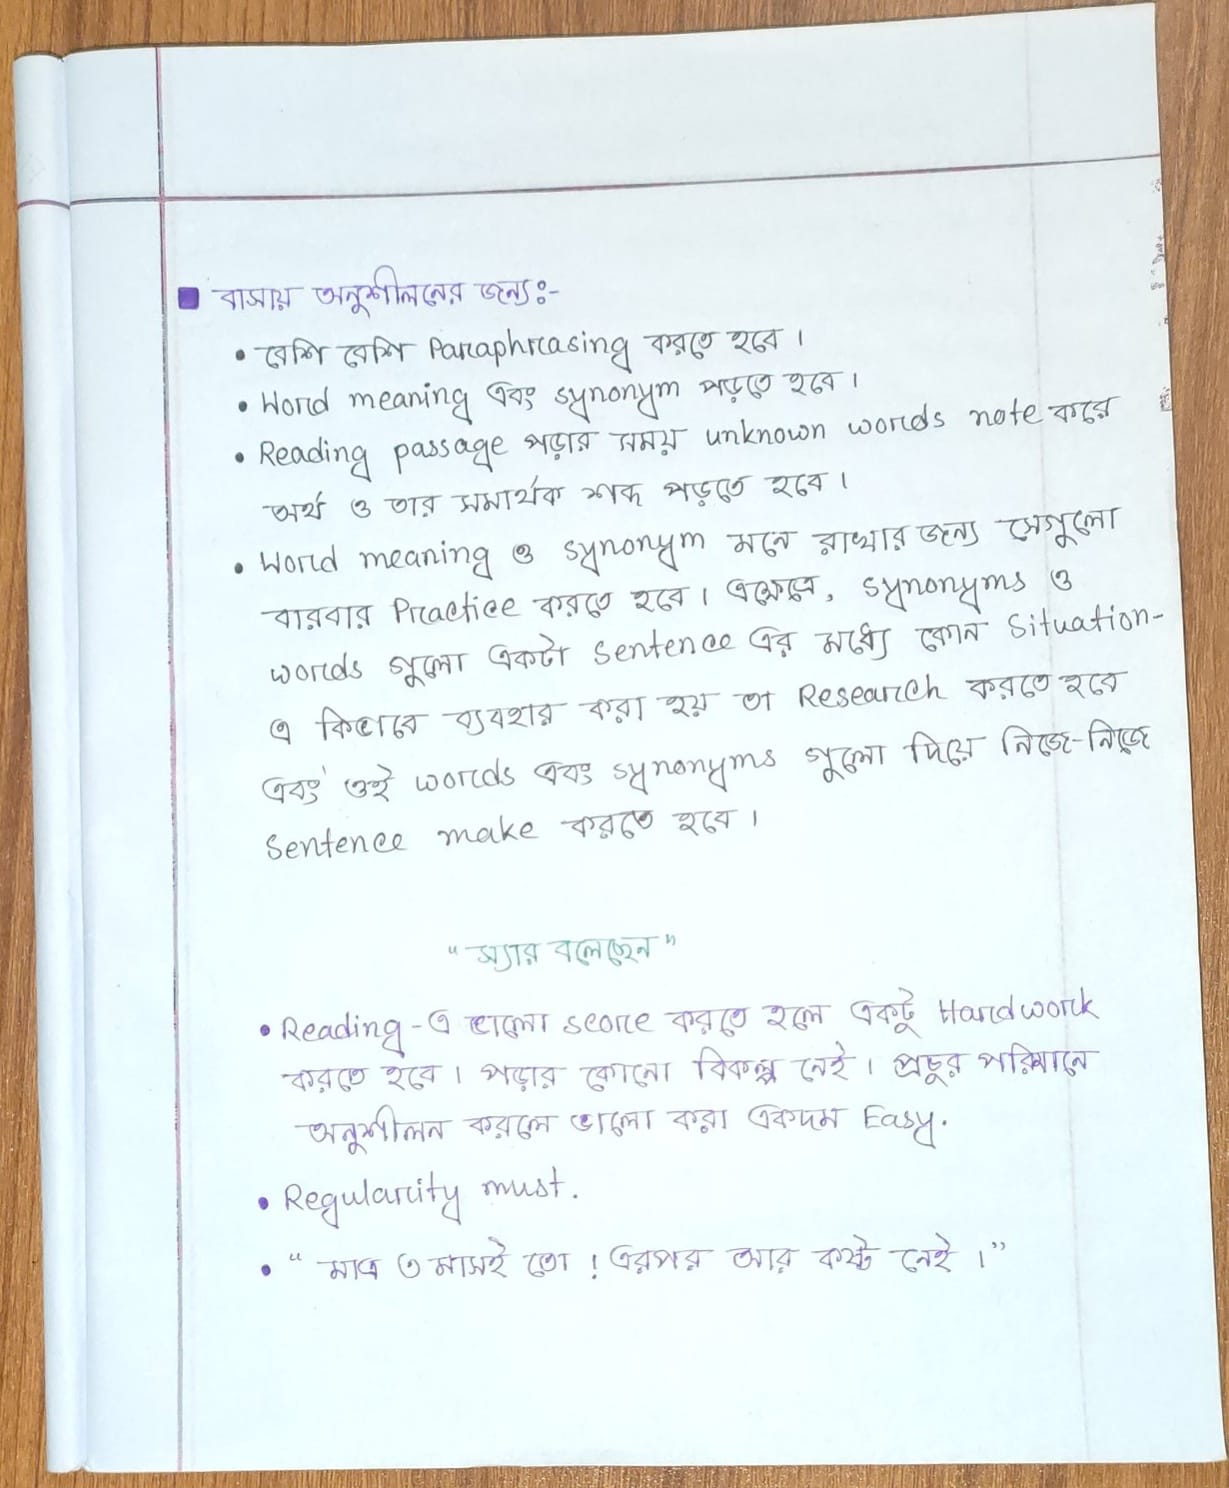 ■ বাসায় অনুশীলনের জন্যঃ-
• বেশি বেশি Paraphrasing করতে হবে।
• Word meaning এবং synonym পড়তে হবে।
• Reading passage পড়ার সময় unknown words note করে
অর্থ ও তার সমার্থক শব্দ পড়তে হবে।
• Word meaning ও synonym মনে রাখার জন্য সেগুলো
বারবার Practice করতে হবে। এক্ষেত্রে, synonyms ও
words গুলো একটা sentence এর মধ্যে কোন Situation-
এ কিভাবে ব্যবহার করা হয় তা Research করতে হবে
এবং ওই words এবং synonyms গুলো দিয়ে নিজে-নিজে
Sentence make করতে হবে।
“স্যার বলেছেন”
• Reading-এ ভালো score করতে হলে একটু Hardwork
করতে হবে। পড়ার কোনো বিকল্প নেই। প্রচুর পরিমানে
অনুশীলন করলে ভালো করা একদম Easy.
• Regularity must.
• “মাত্র ৩ মাসই তো! এরপর আর কষ্ট নেই।”